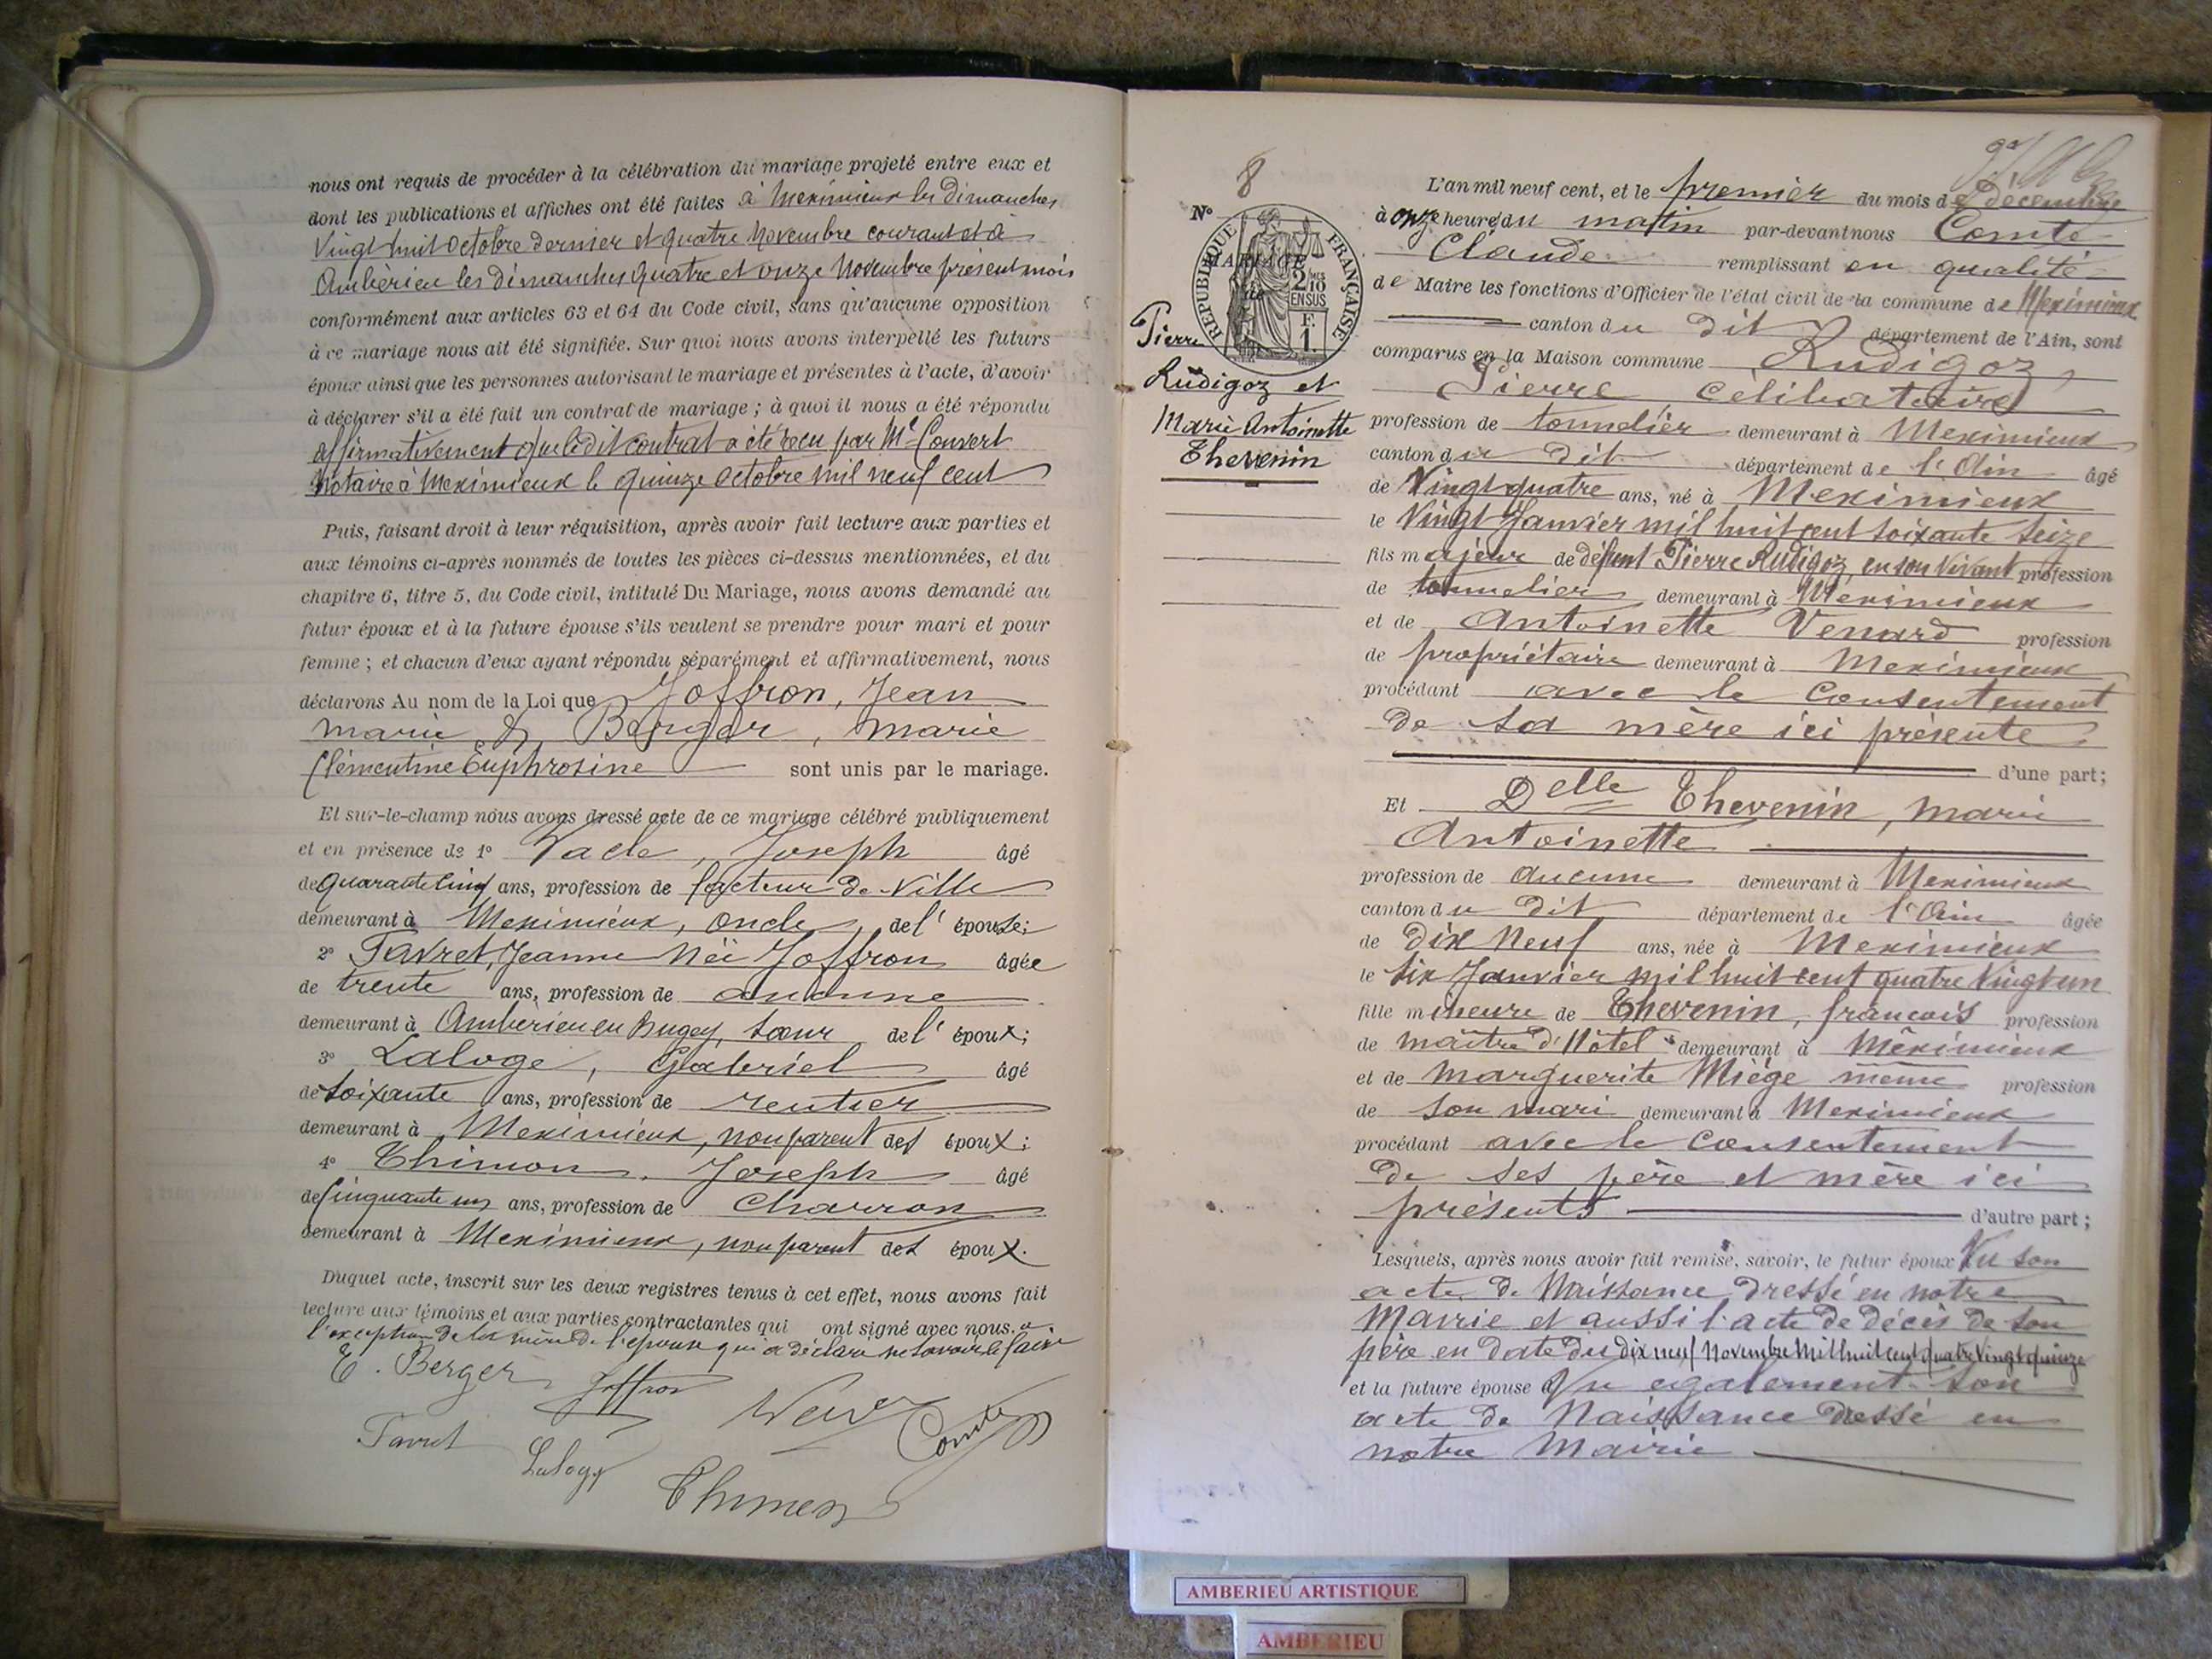 nous ont requis de procéder à la célébration du mariage projeté entre eux et
dont les publications et affiches ont été faites à Meximieux les dimanches
Vingt huit Octobre dernier et quatre Novembre courant et à
Ambérieu les dimanches quatre et onze Novembre présent mois
conformément aux articles 63 et 64 du Code civil, sans qu'aucune opposition
à ce mariage nous ait été signifiée. Sur quoi nous avons interpellé les futurs
époux ainsi que les personnes autorisant le mariage et présentes à l'acte, d'avoir
à déclarer s'il a été fait un contrat de mariage ; à quoi il nous a été répondu
affirmativement que ledit contrat a été recu par Me Convert
Notaire à Meximieux le quinze octobre mil neuf cent
Puis, faisant droit à leur réquisition, après avoir fait lecture aux parties et
aux témoins ci-après nommés de toutes les pièces ci-dessus mentionnées, et du
chapitre 6, titre 5, du Code civil, intitulé Du Mariage, nous avons demandé au
futur époux et à la future épouse s'ils veulent se prendre pour mari et pour
femme ; et chacun d'eux ayant répondu séparément et affirmativement, nous
déclarons Au nom de la Loi que Joffron, Jean
marie & Berger, Marie
Clémentine Euphrosine sont unis par le mariage.
Et sur-le-champ nous avons dressé acte de ce mariage célébré publiquement
et en présence de 1° Vacle, Joseph âgé
de quarante cinq ans, profession de facteur de Ville
demeurant à Meximieux, oncle de l' épouse;
2° Favret, Jeanne née Joffron âgée
de trente ans, profession de aucune
demeurant à Ambérieu en Bugey, sœur de l' époux;
3° Laloge, Gabriel âgé
de soixante ans, profession de rentier
demeurant à Meximieux, non parent des époux;
4° Thimon, Joseph âgé
de cinquante un ans, profession de Charron
demeurant à Meximieux, non parent des époux.
Duquel acte, inscrit sur les deux registres tenus à cet effet, nous avons fait
lecture aux témoins et aux parties contractantes qui ont signé avec nous, a
l'exception de la mère de l'époux qui a déclaré ne savoir le faire
E. Berger Joffron
Favret Laloge Comte
Thimon
8
N°
RÉPUBLIQUE FRANÇAISE
MARIAGE
de
2 MES
10
EN SUS
F.
1.
Pierre
Rudigoz et
Marie Antoinette
Thevenin
L'an mil neuf cent, et le premier du mois de décembre
à onze heures du matin par-devant nous Comte
Claude remplissant en qualité
de Maire les fonctions d'Officier de l'état civil de la commune de Meximieux
canton du dit département de l'Ain, sont
comparus en la Maison commune Rudigoz,
Pierre célibataire
profession de tonnelier demeurant à Meximieux
canton du dit département de l'Ain âgé
de Vingt quatre ans, né à Meximieux
le Vingt Janvier mil huit cent soixante seize
fils majeur de défunt Pierre Rudigoz, en son vivant profession
de tonnelier demeurant à Meximieux
et de Antoinette Venard profession
de propriétaire demeurant à Meximieux
procédant avec le consentement
de sa mère ici présente
d'une part;
Et Delle Thevenin, Marie
Antoinette
profession de aucune demeurant à Meximieux
canton du dit département de l'Ain âgée
de dix neuf ans, née à Meximieux
le six Janvier mil huit cent quatre Vingt un
fille mineure de Thevenin, françois profession
de maître d'Hôtel demeurant à Méximieux
et de Marguerite Miége même profession
de son mari demeurant à Meximieux
procédant avec le consentement
de ses père et mère ici
présents d'autre part ;
Lesquels, après nous avoir fait remise, savoir, le futur époux Vu son
acte de Naissance dressé en notre
Mairie et aussi l'acte de décès de son
père en date du dix neuf Novembre Mil huit cent quatre Vingt quinze
et la future épouse Vu egalement son
acte de Naissance dressé en
notre Mairie
AMBERIEU ARTISTIQUE
AMBERIEU